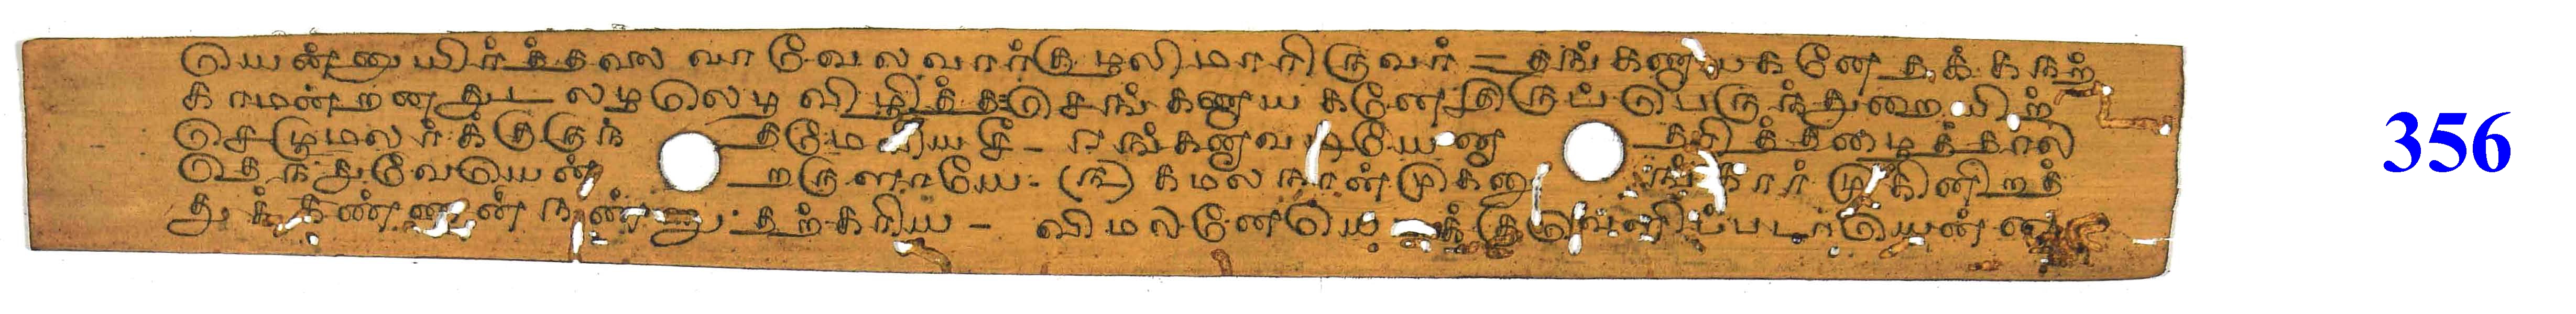 யென்னுயிர்த்தலைவா வேலவார்குழலிமாரிருவர் - தங்கணாயகனே தக்க நற்
காமன்றனதுடலழலெழ விழித்த செங்கணாயகனே திருப்பெருந்துறையிற்
செழுமலர்க்குருந் தமேவியசீ - ரங்கணாவடியேனா தரித்தழைத்தால
தெந்துவேயென் றருளாயே - (௩) கமலநான்முகனு ங்கார்முகினிறத்
துக்கண்ணனுன்நண்ணுதற்கரிய - விமலனேயெ க்குவெளிப்படாயென்ன
356